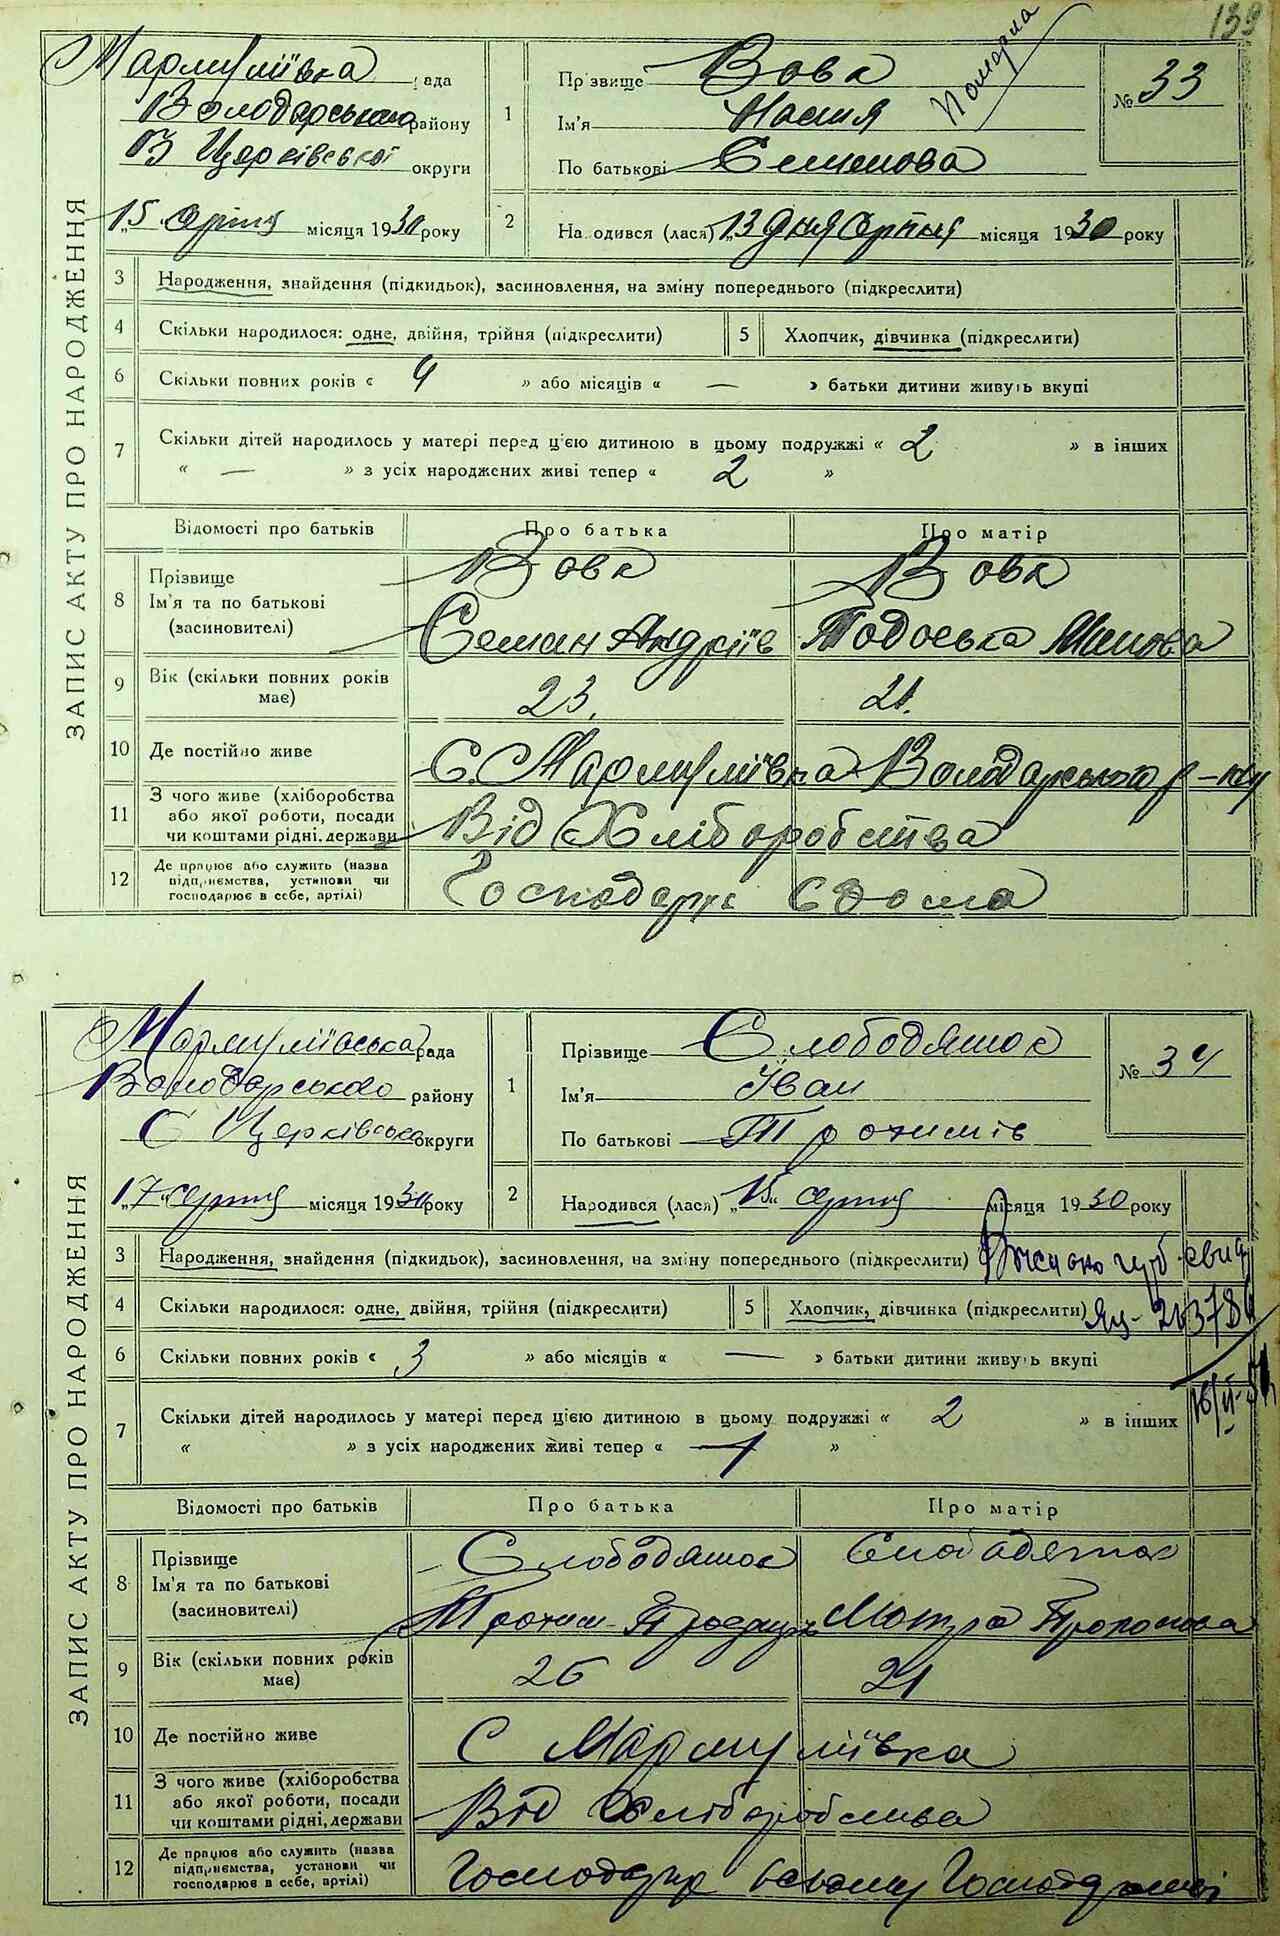 139
Мармуліївка рада
Володарського району
Б Церківської округи
15 серпня місяця 1930 року
1 Прізвище Вовк
Ім'я Настя
По батькові Семенова
Померла
№ 33
2 Народився (лася) „13 дня серпня місяця 1930 року
ЗАПИС АКТУ ПРО НАРОДЖЕННЯ
3 Народження, знайдення (підкидьок), засиновлення, на зміну попереднього (підкреслити)
4 Скільки народилося: одне, двійня, трійня (підкреслити) 5 Хлопчик, дівчинка (підкреслити)
6 Скільки повних років « 4 » або місяців « — » батьки дитини живуть вкупі
7 Скільки дітей народилось у матері перед цією дитиною в цьому подружжі « 2 » в інших
« — » з усіх народжених живі тепер « 2 »
Відомості про батьків Про батька Про матір
8 Прізвище Вовк Вовк
Ім'я та по батькові
(засиновителі) Семен Андріїв Тодоська
9 Вік (скільки повних років має) 23. 21.
10 Де постійно живе С. Мармуліївка Володарського р-ну
11 З чого живе (хліборобства
або якої роботи, посади
чи коштами рідні, держави Від Хліборобства
12 Де працює або служить (назва
підприємства, установи чи
господарює в себе, артілі) Господарує вдома
Мармуліївська рада
Володарського району
Б Церківської округи
17 серпня місяця 1930 року
1 Прізвище Слободянюк
Ім'я Іван
По батькові Трохимів
№ 34
2 Народився (лася) „15" серпня місяця 1930 року
ЗАПИС АКТУ ПРО НАРОДЖЕННЯ
3 Народження, знайдення (підкидьок), засиновлення, на зміну попереднього (підкреслити)
4 Скільки народилося: одне, двійня, трійня (підкреслити) 5 Хлопчик, дівчинка (підкреслити)
6 Скільки повних років « 3 » або місяців « — » батьки дитини живуть вкупі
7 Скільки дітей народилось у матері перед цією дитиною в цьому подружжі « 2 » в інших
« » з усіх народжених живі тепер « 1 »
Відомості про батьків Про батька Про матір
8 Прізвище Слободянюк Слободянюк
Ім'я та по батькові
(засиновителі) Трохим Мотря
9 Вік (скільки повних років має) 26 21
10 Де постійно живе С Мармуліївка
11 З чого живе (хліборобства
або якої роботи, посади
чи коштами рідні, держави Від Хліборобства
12 Де працює або служить (назва
підприємства, установи чи
господарює в себе, артілі) Господарує